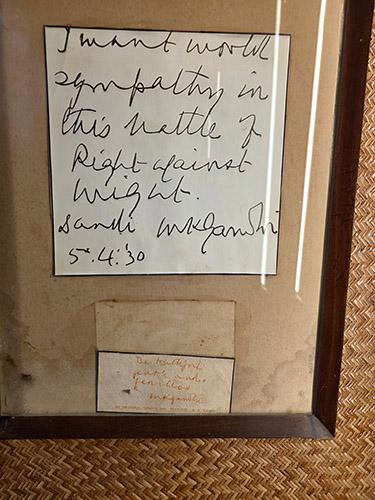 I want world
sympathy in
this battle of
Right against
might.
Dandi MKGandhi
5.4.'30
MKGandhi